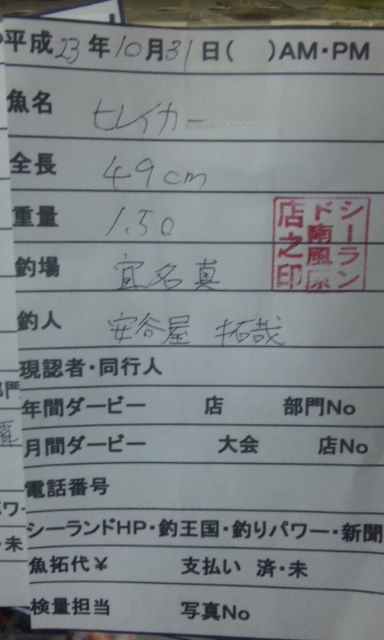 平成23年10月31日( )AM・PM
魚名 ヒレイカー
全長 49cm
重量 1.50
シーラン
ド南風原
店之印
釣場 宜名真
釣人 安谷屋 拓哉
現認者・同行人
年間ダービー 店 部門No
月間ダービー 大会 店No
電話番号
シーランドHP・釣王国・釣りパワー・新聞
魚拓代¥ 支払い 済・未
検量担当 写真No